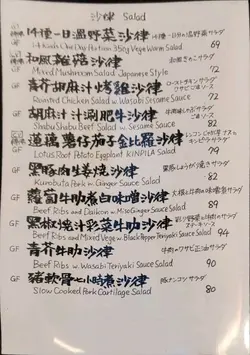 沙律 Salad
14種一日溫野菜沙律 14種一日分の温野菜サラダ
14 Kinds One Day Portion 350g Vege Warm Salad 69
GF 和風雜菇沙律 和風きのこサラダ
Mixed Mushroom Salad Japanese Style 72
GF 青芥胡麻汁烤雞沙律 ローストチキンサラダ
Roasted Chicken Salad w. Wasabi Sesame Sauce 72
胡麻汁汁涮肥牛沙律 牛肉しゃぶサラダ
Shabu Shabu Beef Salad w. Sesame Sauce 82
蓮藕薯仔茄子金比羅沙律
GF Lotus Root Potato Eggplant KINPILA Salad 79
GF 黑豚肉生姜燒沙律 黒豚しょうが焼きサラダ
Kurobuta Pork w. Ginger Sauce Salad 82
GF 蘿蔔牛肋煮白味噌沙律 大根と牛肉の味噌煮サラダ
Beef Ribs and Daikon w. Miso Ginger Sauce Salad 90
GF 黑椒燒汁彩菜牛肋沙律
Beef Ribs and Mixed Vege w. Black Pepper Teriyaki Sauce Salad 94
GF 青芥牛肋沙律 牛肉のワサビ正油サラダ
Beef Ribs w. Wasabi Teriyaki Sauce Salad 90
GF 豬軟骨七小時煮沙律 豚ナンコツサラダ
Slow Cooked Pork Cartilage Salad 80